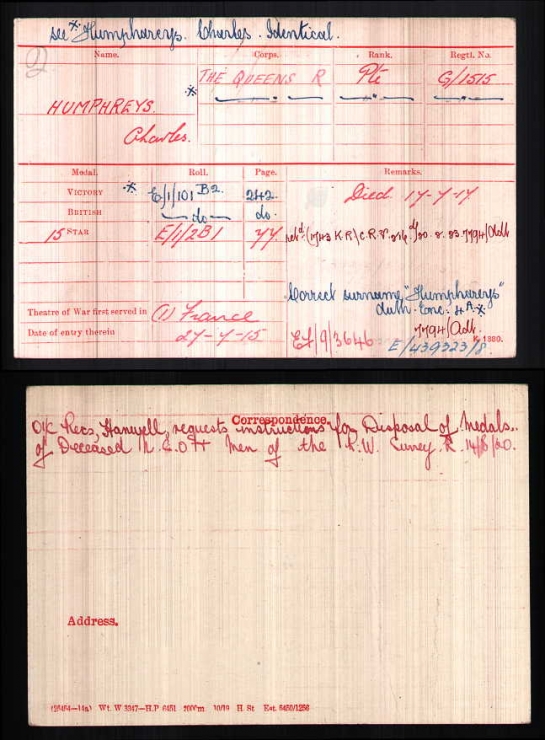 see * Humphareys. Charles. Identical.
Name. Corps. Rank. Regtl. No.
* THE QUEENS R Pte G/1515
HUMPHREYS
Charles.
Medal. Roll. Page. Remarks.
VICTORY * E/1/101 B2. 242. Died 17-7-17
BRITISH do do.
15 STAR E/1/2B1 (1743 K.R) C.R.V. 7794/Adt
Correct surname "Humphareys"
Auth. Enc. 4A*
7794/Adt.
Theatre of War first served in (1) France
Date of entry therein 27-7-15 EF/9/3646 E/439323/8. K 1380.
Correspondence.
O/C Recs, Hanwell, requests instructions for Disposal of Medals.
of Deceased N.C.O & Men of the R.W. Surrey R. 14/8/20.
Address.
(26464—14a) Wt. W 3347—H.P 6451 7000m 10/19 H. St Est. 6450/1256